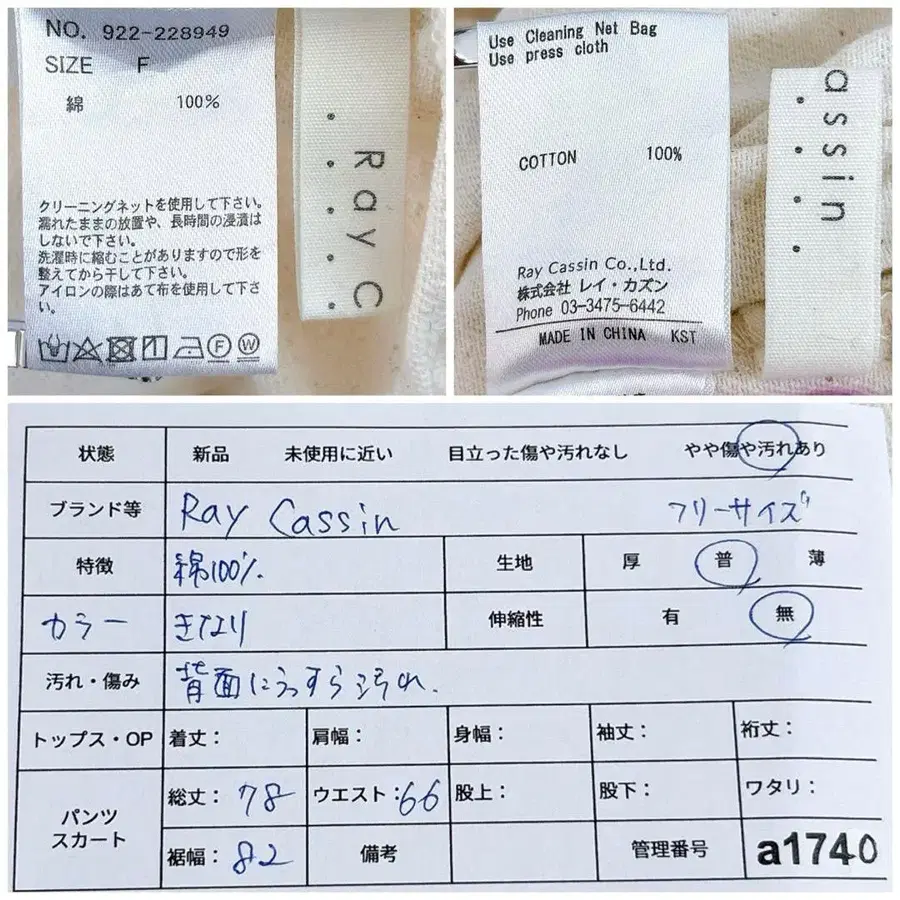 NO. 922-228949
SIZE F
綿 100%
クリーニングネットを使用して下さい。
濡れたままの放置や、長時間の浸漬は
しないで下さい。
洗濯時に縮むことがありますので形を
整えてから干して下さい。
アイロンの際はあて布を使用して下さ
い。
F W
Ray C
Use Cleaning Net Bag
Use press cloth
COTTON 100%
Ray Cassin Co.,Ltd.
株式会社 レイ・カズン
Phone 03-3475-6442
MADE IN CHINA KST
assin
状態 新品 未使用に近い 目立った傷や汚れなし やや傷や汚れあり
ブランド等 Ray Cassin フリーサイズ
特徴 綿100% 生地 厚 普 薄
カラー きなり 伸縮性 有 無
汚れ・傷み 背面にうっすら汚れ.
トップス・OP 着丈: 肩幅: 身幅: 袖丈: 裄丈:
パンツ
スカート
総丈: 78 ウエスト: 66 股上: 股下: ワタリ:
裾幅: 82 備考 管理番号 a1740